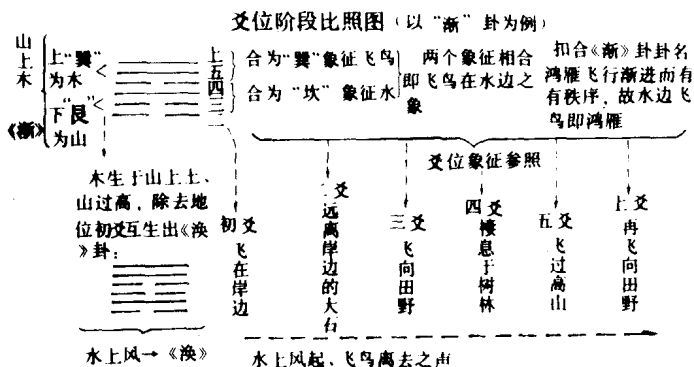 爻位阶段比照图（以“渐”卦为例）
山上木
《渐》
上“巽”
为木
下“艮”
为山
上五四三二
合为“巽”象征飞鸟
合为“坎”象征水
两个象征相合
即飞鸟在水边之
象
扣合《渐》卦卦名
鸿雁飞行渐进而有
有秩序，故水边飞
鸟即鸿雁
爻位象征参照
木生于山上土、
山过高，除去地
位初爻互生出《涣
》卦：
水上风→《涣》
初爻
飞在岸边
二爻
远离岸边的大石
三爻
飞向田野
四爻
棲息于树林
五爻
飞过高山
上爻
再飞向田野
水上风起、飞鸟离去之声